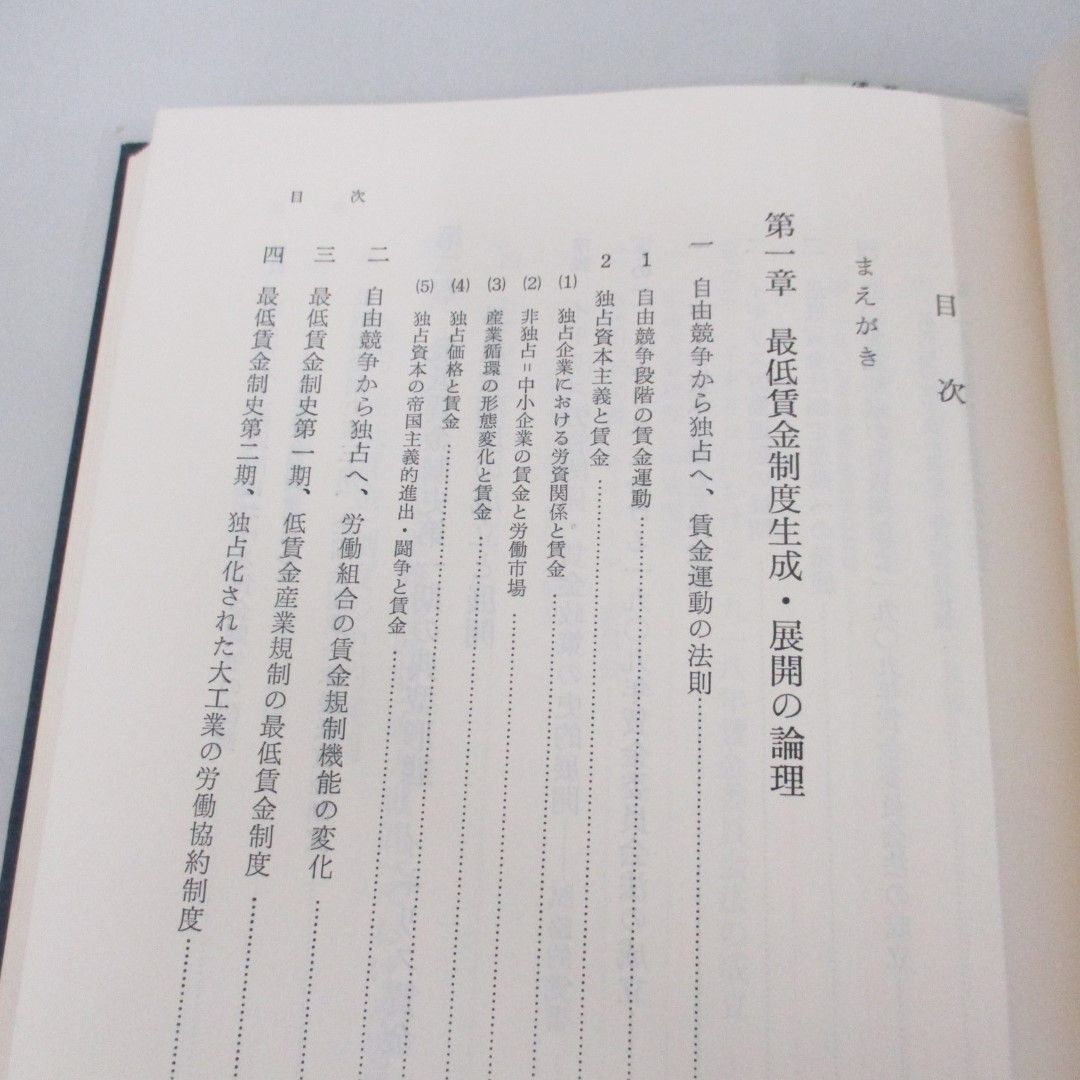 目次
まえがき
第一章 最低賃金制度生成・展開の論理
一 自由競争から独占へ、賃金運動の法則
1 自由競争段階の賃金運動
2 独占資本主義と賃金
(1) 独占企業における労資関係と賃金
(2) 非独占=中小企業の賃金と労働市場
(3) 産業循環の形態変化と賃金
(4) 独占価格と賃金
(5) 独占資本の帝国主義的進出・闘争と賃金
二 自由競争から独占へ、労働組合の賃金規制機能の変化
三 最低賃金制史第一期、低賃金産業規制の最低賃金制度
四 最低賃金制史第二期、独占化された大工業の労働協約制度
目次